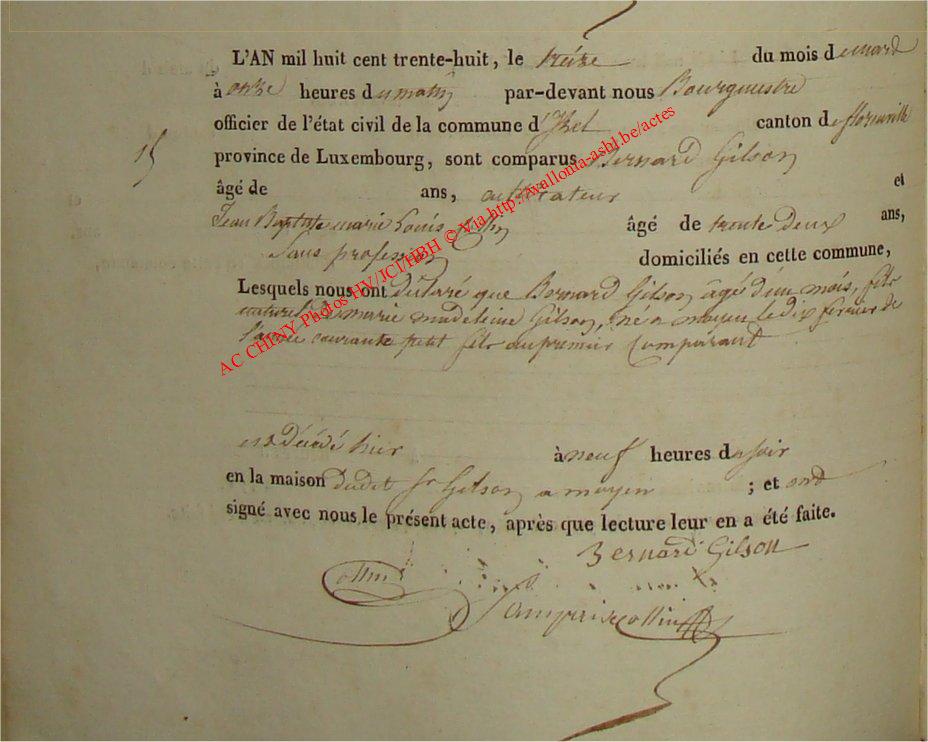 L'AN mil huit cent trente-huit, le treize du mois de mard
à onze heures du matin par-devant nous Bourgmestre
officier de l'état civil de la commune d'Izel canton de florenville
15 province de Luxembourg, sont comparus Bernard Gilson
âgé de ans, cultivateur et
Jean Baptiste marie Louis Collin âgé de trente deux ans,
Sans profession domiciliés en cette commune,
Lesquels nous ont déclaré que Bernard Gilson âgé d'un mois, fils
naturel de marie madeleine Gilson, né a moyen le dix fevrier de
l'année courante petit fils du premier Comparant
est décédé hier à neuf heures du soir
en la maison dudit Sr Gilson a moyen ; et ont
signé avec nous le présent acte, après que lecture leur en a été faite.
Bernard Gilson
Collin
collin
AC CHINY Photos HV/JCI/HBH © Via http://wallonia-asbl.be/actes